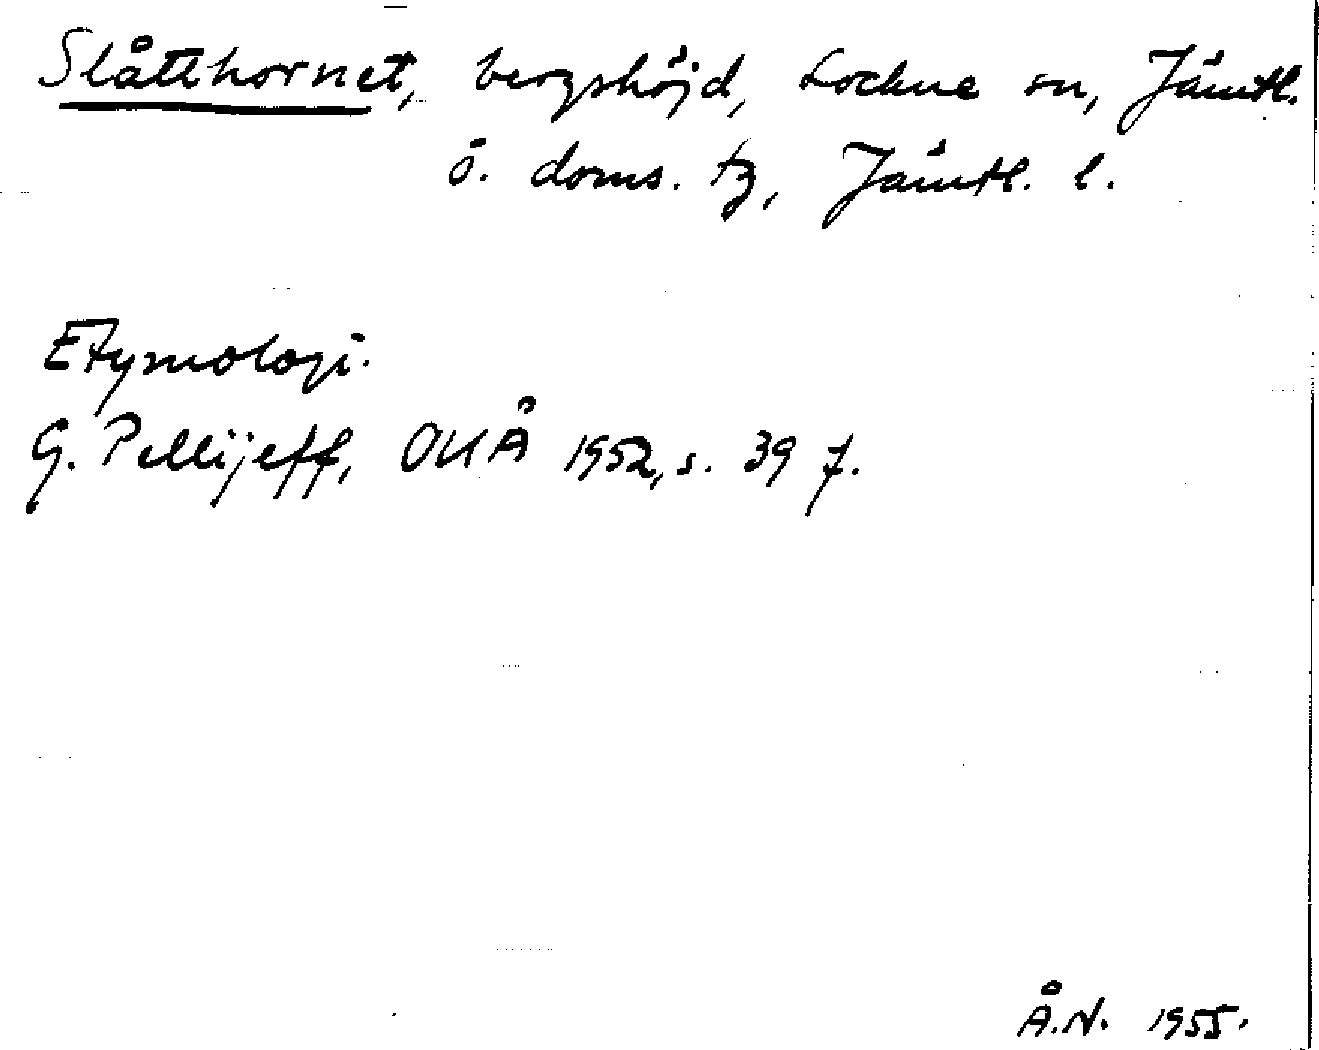 Slåtthornet, bergshöjd, Lockne sn, Jämtl.
ö. doms. tg, Jämtl. l.
Etymologi.
G. Pellijeff, OUÅ 1952, s. 39 f.
Å.N. 1955.